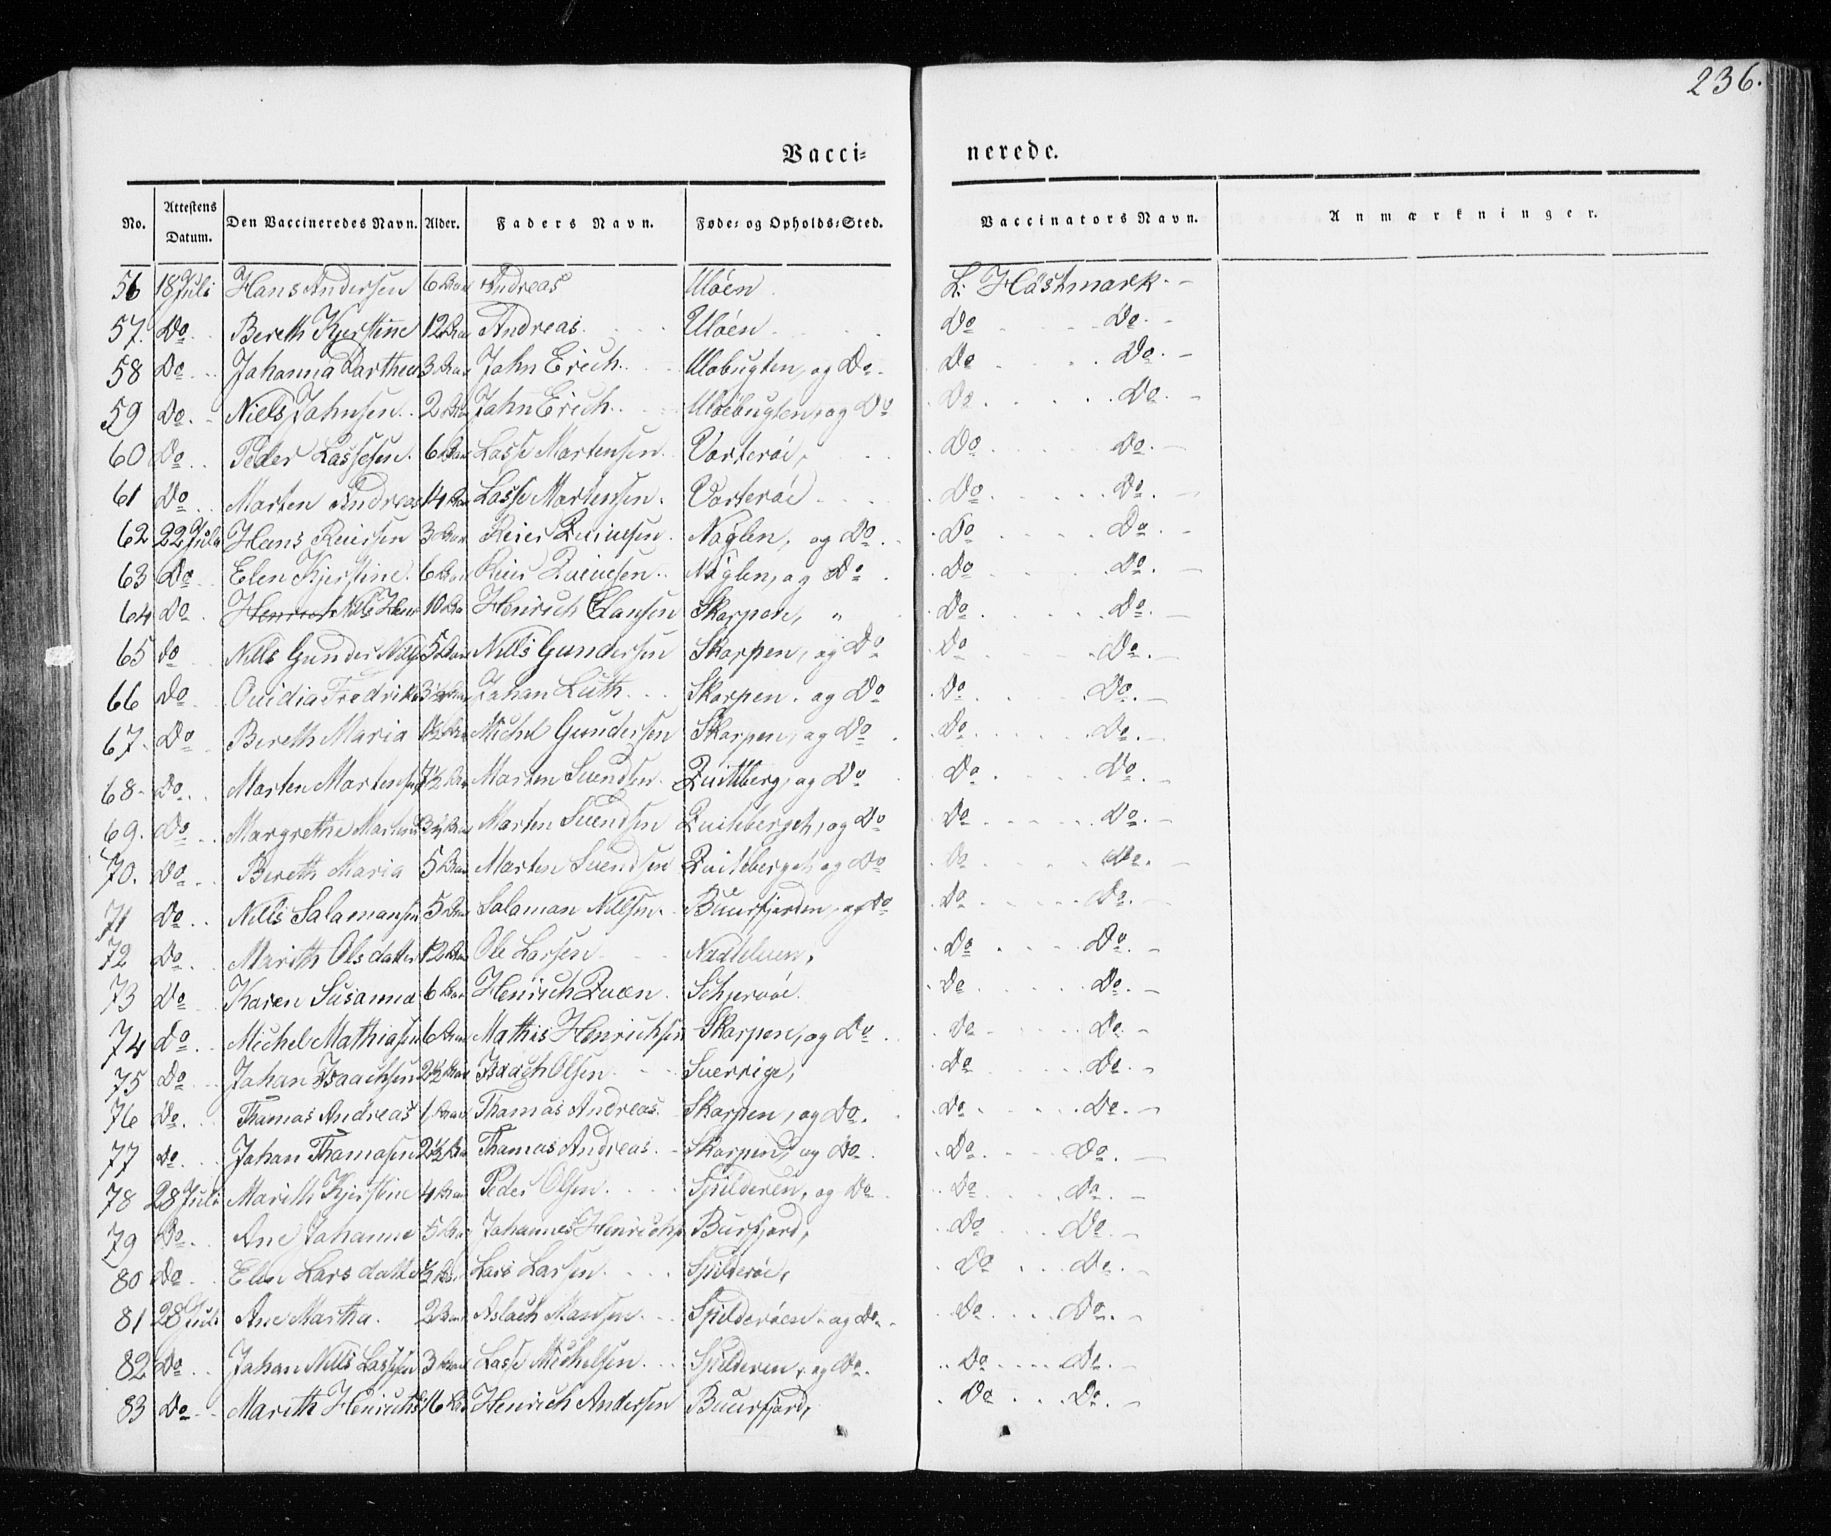 236.
Vacci= nerede.
No. Attestens Datum. Den Vaccineredes Navn. Alder. Faders Navn. Føde= og Opholds=Sted. Vaccinators Navn. Anmærkninger.
56 18 Juli Hans Andersen 6 Andreas Uløen L: Høstmark. -
57. Do Bereth Kjerstine 12 Andreas Uløen Do Do. -
58 Do Johanna 3 John Erich. og Do. Do Do. -
59 Do Niels Johnsen 2 John Erich. Uløebugten, og Do Do Do. -
60 Do Peder Lassesen. 6 Lasse Martensen Vorterøe, Do Do. -
61 Do Marten Andreas 14 Lasse Martensen. Vorterøe Do Do. -
62 22 Juli Hans Reiersen 3 Reier Nøglen, og Do. Do Do. -
63 Do Elen Kjerstine. 6 Reier Nøglen, og Do. Do Do. -
64 Do Nils 10 Henrich Clausen Skorpen, „ Do Do. -
65 do Nills Gunder 5 Nills Gundersen Skorpen, og Do Do Do. -
66 Do Ovidia Fredrik 3½ Johan Luth. Skorpen. og Do Do Do. -
67. Do Bereth Maria 1½ Michel Gundersen Skorpen, og Do Do Do. -
68 Do Marten Martens 7½ Marten Svendsen. Qvitberg, og Do Do Do. -
69. Do Margrethe 3½ Marten Svendsen Qviteberget, og Do Do Do. -
70. Do Bereth Maria 5 Marten Svendsen Qviteberget, og Do Do Do. -
71 Do Nills Salamonsen 5 Salamon Nillsen. Buurfjorden, og Do Do Do. -
72 Do Marith Olsdatter 12 Ole Larsen Do Do. -
73 Do Karen Susanna 6 Henrich Qvæn. Schjervøe. Do Do. -
74 Do Michel Mathiasen 6 Mathis Henrichsen Skorpen, og Do Do Do. -
75 Do Johan Isaachsen 2½ Isaach Olsen Sverrige, Do Do. -
76 Do. Thomas Andreas 1 Thomas Andreas. Skorpen, og Do. Do Do. -
77 Do Johan Thomasen 2½ Thomas Andreas. Skorpen, og Do Do Do. -
78 28 Juli Marith Kjerstine 4 Peder Olsen. Spilderen, og Do Do Do. -
79 Do. Ane Johanne 5 Johannes Henrichs Burfjord, Do Do. -
80 Do Elen Larsdatter ½ Lars Larsen. Spilderøe, Do Do. -
81 28 Juli Ane Martha. 2 Aslach Spilderøen. og Do. Do Do. -
82 Do Johan Nills Lassesen 3 Lasse Michelsen. Spilderen, og Do. Do Do. -
83 Do Marith Henrichs 16 Henrich Andersen Buurfjord, Do Do. -